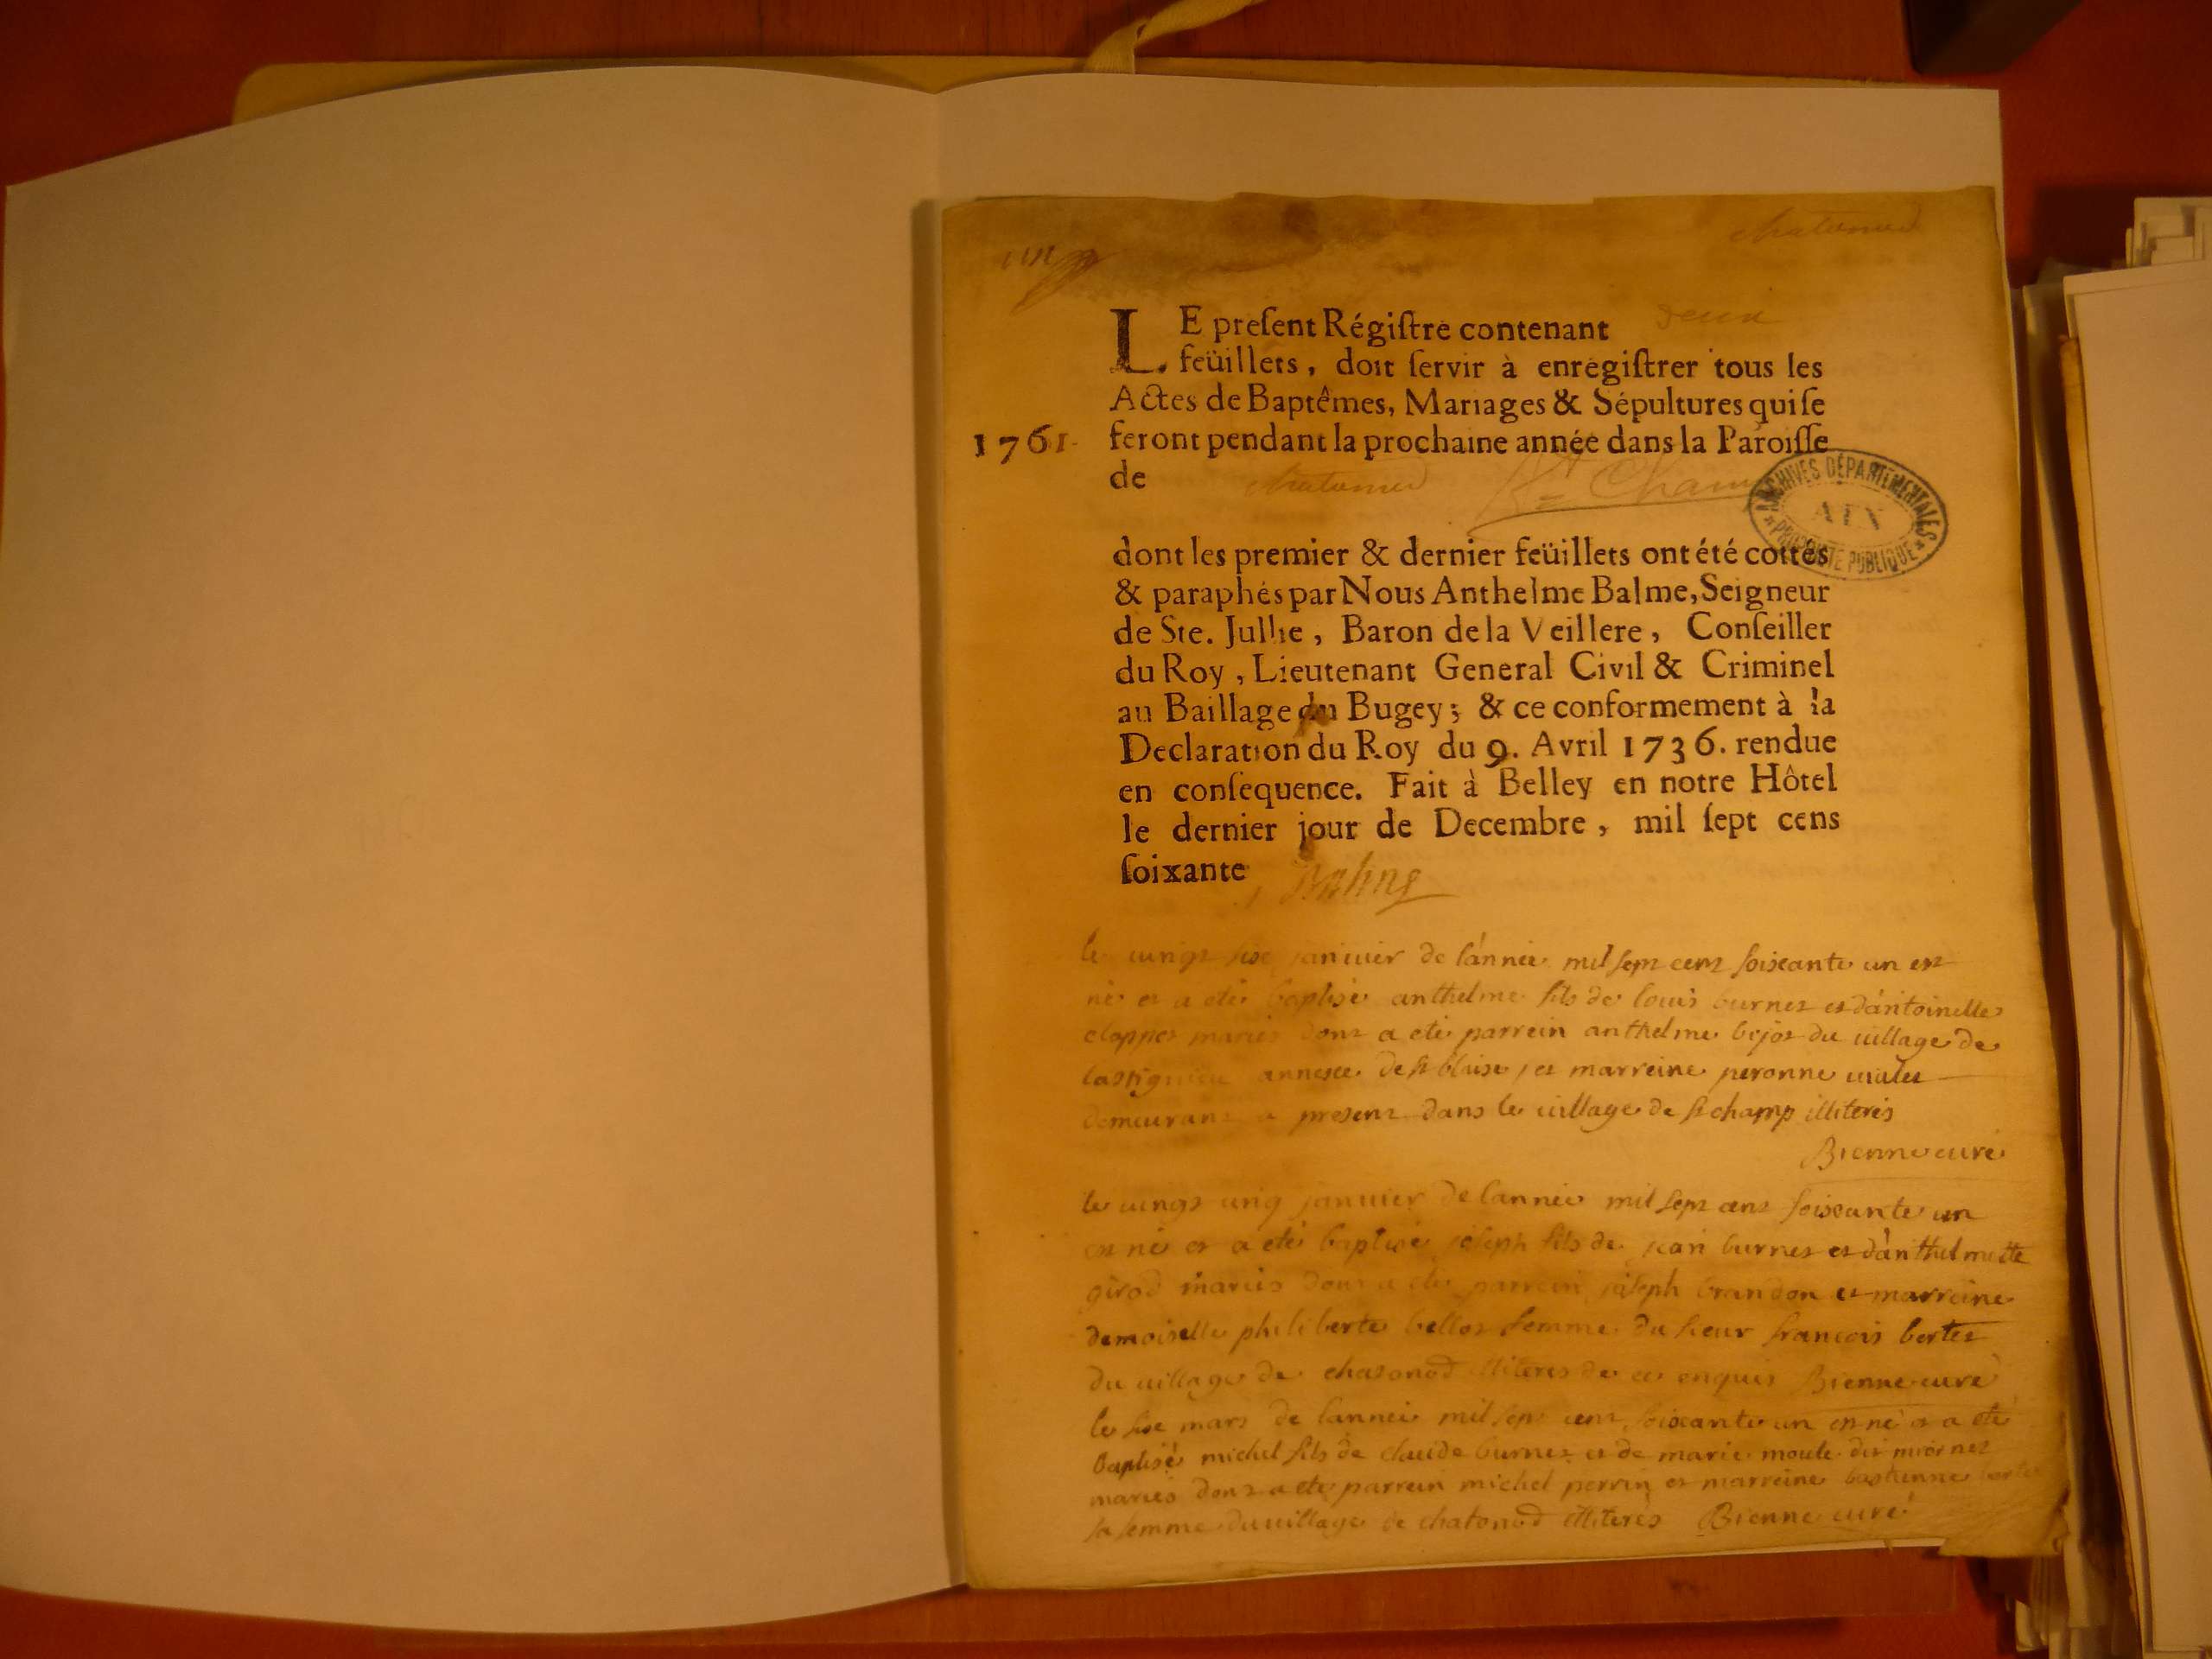 chatonod
deux
LE preſent Régiſtre contenant
feüillets, doit ſervir à enregiſtrer tous les
Actes de Baptêmes, Mariages & Sépultures qui ſe
1761. feront pendant la prochaine année dans la Paroiſſe
de chatonod St Cham
ARCHIVES DÉPARTEMENTALES
AIN
PROPRIÉTÉ PUBLIQUE
dont les premier & dernier feüillets ont été cottés
& paraphés par Nous Anthelme Balme, Seigneur
de Ste. Jullie, Baron de la Veillere, Conſeiller
du Roy, Lieutenant General Civil & Criminel
au Baillage du Bugey; & ce conformement à la
Declaration du Roy du 9. Avril 1736. rendue
en conſequence. Fait à Belley en notre Hôtel
le dernier jour de Decembre, mil ſept cens
ſoixante Balme
le vingt six janvier de l'année mil sept cent soixante un est
né et a eté baptisé anthelme fils de louis burnet et d'antoinette
clappet mariés dont a eté parrein anthelme bejot du village de
annexe de st blaise, et marreine peronne
demeurant a present dans le village de st champ illiterés
Bienne curé
le vingt janvier de l'année mil sept cent soixante un
est né et a eté baptisé joseph fils de jean burnet et d'anthelmette
girod mariés dont a eté parrein joseph brandon et marreine
demoiselle philiberte bellot femme du sieur francois bertet
du village de chatonod illiterés de ce enquis Bienne curé
le six mars de l'année mil sept cent soixante un est né et a eté
baptisé michel fils de claude burnet et de marie moule dit
mariés dont a eté parrein michel perrin et marreine bastienne
sa femme du village de chatonod illiterés Bienne curé